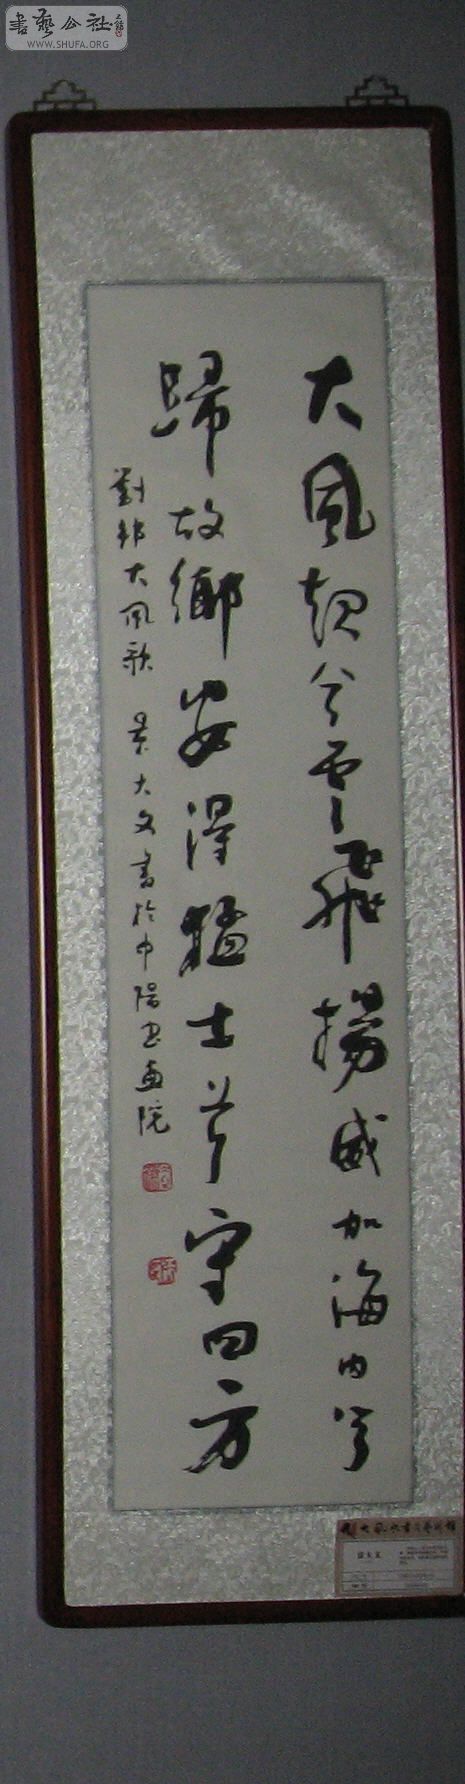 書藝公社
WWW.SHUFA.ORG
大風起兮雲飛揚威加海内兮
歸故鄉安得猛士兮守四方
劉邦大風歌 景大文書於中陽书畫院